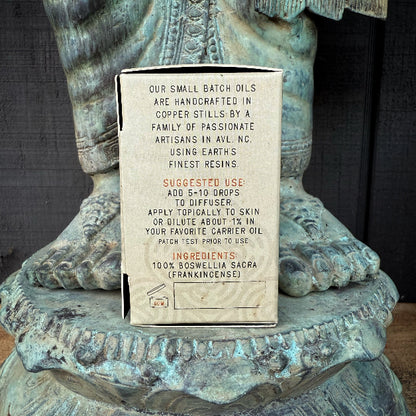 OUR SMALL BATCH OILS
ARE HANDCRAFTED IN
COPPER STILLS BY A
FAMILY OF PASSIONATE
ARTISANS IN AVL, NC,
USING EARTH'S
FINEST RESINS.
SUGGESTED USE:
ADD 5-10 DROPS
TO DIFFUSER,
APPLY TOPICALLY TO SKIN
OR DILUTE ABOUT 1% IN
YOUR FAVORITE CARRIER OIL
PATCH TEST PRIOR TO USE
INGREDIENTS:
100% BOSWELLIA SACRA
(FRANKINCENSE)